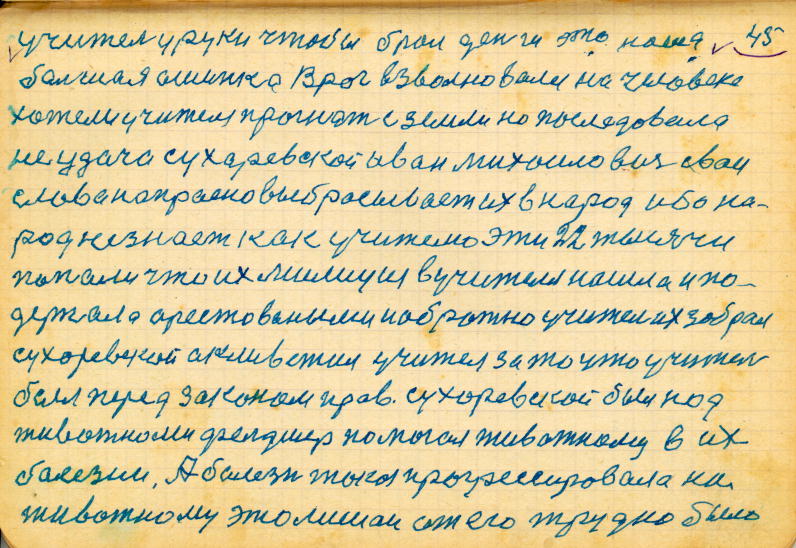 учител у руки чтобы брал денги это наша 45
балшая ошипка Врог взволновали на человека
хотели учителя прогнат с земли но последовала
неудача сухаревской иван михоилович сваи
слова напрасно выбрасывает их в народ ибо на-
род незнает как учителю эти 22 тысячи
попали что их милиция в учителя нашла и по-
держала арестоваными и обратно учител их забрал
сухоревской акливетил учител за то что учител
был перед законом прав. сухоревской был над
животноми фелдшер помогал животному в их
балезни. А балезн такая прогрессировала на
животному это лишаи от его трудно было